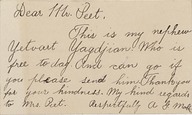 Dear Mr. Peet.
This is my nephew
Yetvart Yagdjian Who is
free today And can go if
you please send him. Thank you
for your kindness. My kind regards
to Mrs. Peet. Respectfully A. G.